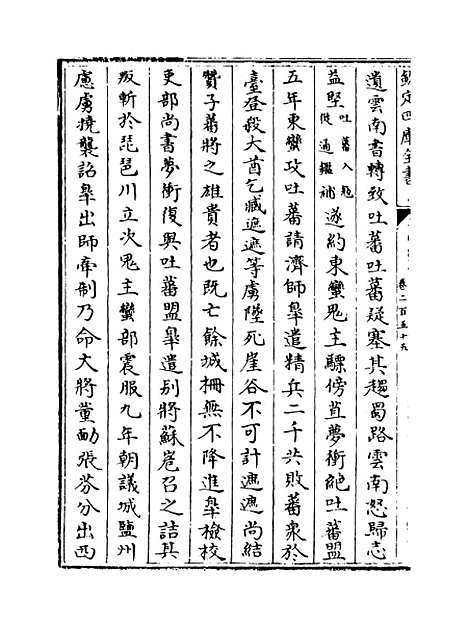 欽定四庫全書
卷二百五十五
遺雲南書轉致吐蕃吐蕃疑塞其趨蜀路雲南怒歸志
益堅吐蕃入趨從通鑑補遂約東蠻鬼主驃傍苴夢衝絶吐蕃盟
五年東蠻攻吐蕃請濟師臯遣精兵二千共敗蕃衆於
臺登殺大酋乞臧遮遮等虜墜死崖谷不可計遮遮尚結
贊子蕃將之雄貴者也既亡餘城柵無不降進臯檢校
吏部尚書夢衝復與吐蕃盟臯遣别將蘇峞召之詰其
叛斬於琵琶川立次鬼主蠻部震服九年朝議城鹽州
慮虜撓襲詔臯出師牽制乃命大將董勔張芬分出西